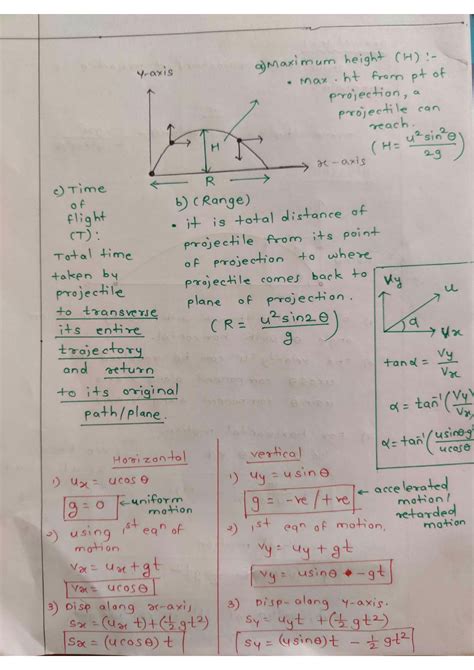 a) Maximum height (H) :-
• max. ht from pt of
projection, a
projectile can
reach.
(H = u²sin²θ/2g)
y-axis
H
R
x-axis
c) Time
of
flight
(T):
Total time
taken by
projectile
to transverse
its entire
trajectory
and return
to its original
path/plane.
b) (Range)
• it is total distance of
projectile from its point
of projection to where
projectile comes back to
plane of projection.
(R = u²sin2θ/g)
Vy
u
α
Vx
tanα = Vy/Vx
α = tan⁻¹(Vy/Vx
α = tan⁻¹(usinθg
ucosθ
Horizontal
1) ux = ucosθ
g = 0 ← uniform
motion
2) using 1st eqn of
motion
vx = ux + gt
vx = ucosθ
3) Disp along x-axis,
sx = (ux t) + (½ gt²)
sx = (ucosθ) t
vertical
1) uy = usinθ
g = -ve / +ve ← accelerated
motion/
retarded
motion
2) 1st eqn of motion,
vy = uy + gt
vy = usinθ - gt
3) Disp- along y-axis.
sy = uyt + (½ gt²)
sy = (usinθ)t - ½ gt²